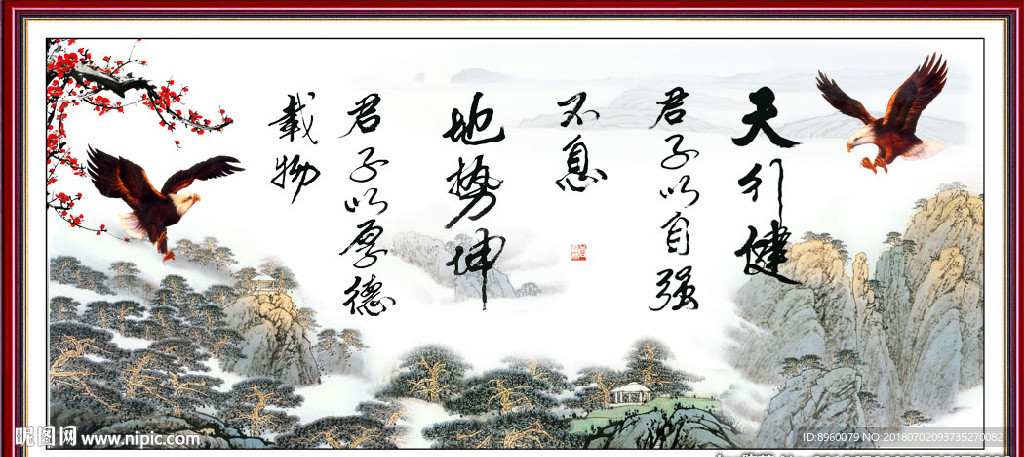 天行健
君子以自强
不息
地势坤
君子以厚德
载物
昵图网 www.nipic.com
ID:8960079 NO:20180702093735270082